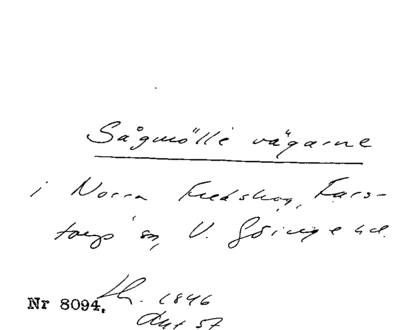 Sågmölle vägarne
i Norra Fredskog, Fars-
torps sn, V. Göinge hd.
Nr 8094. 1846